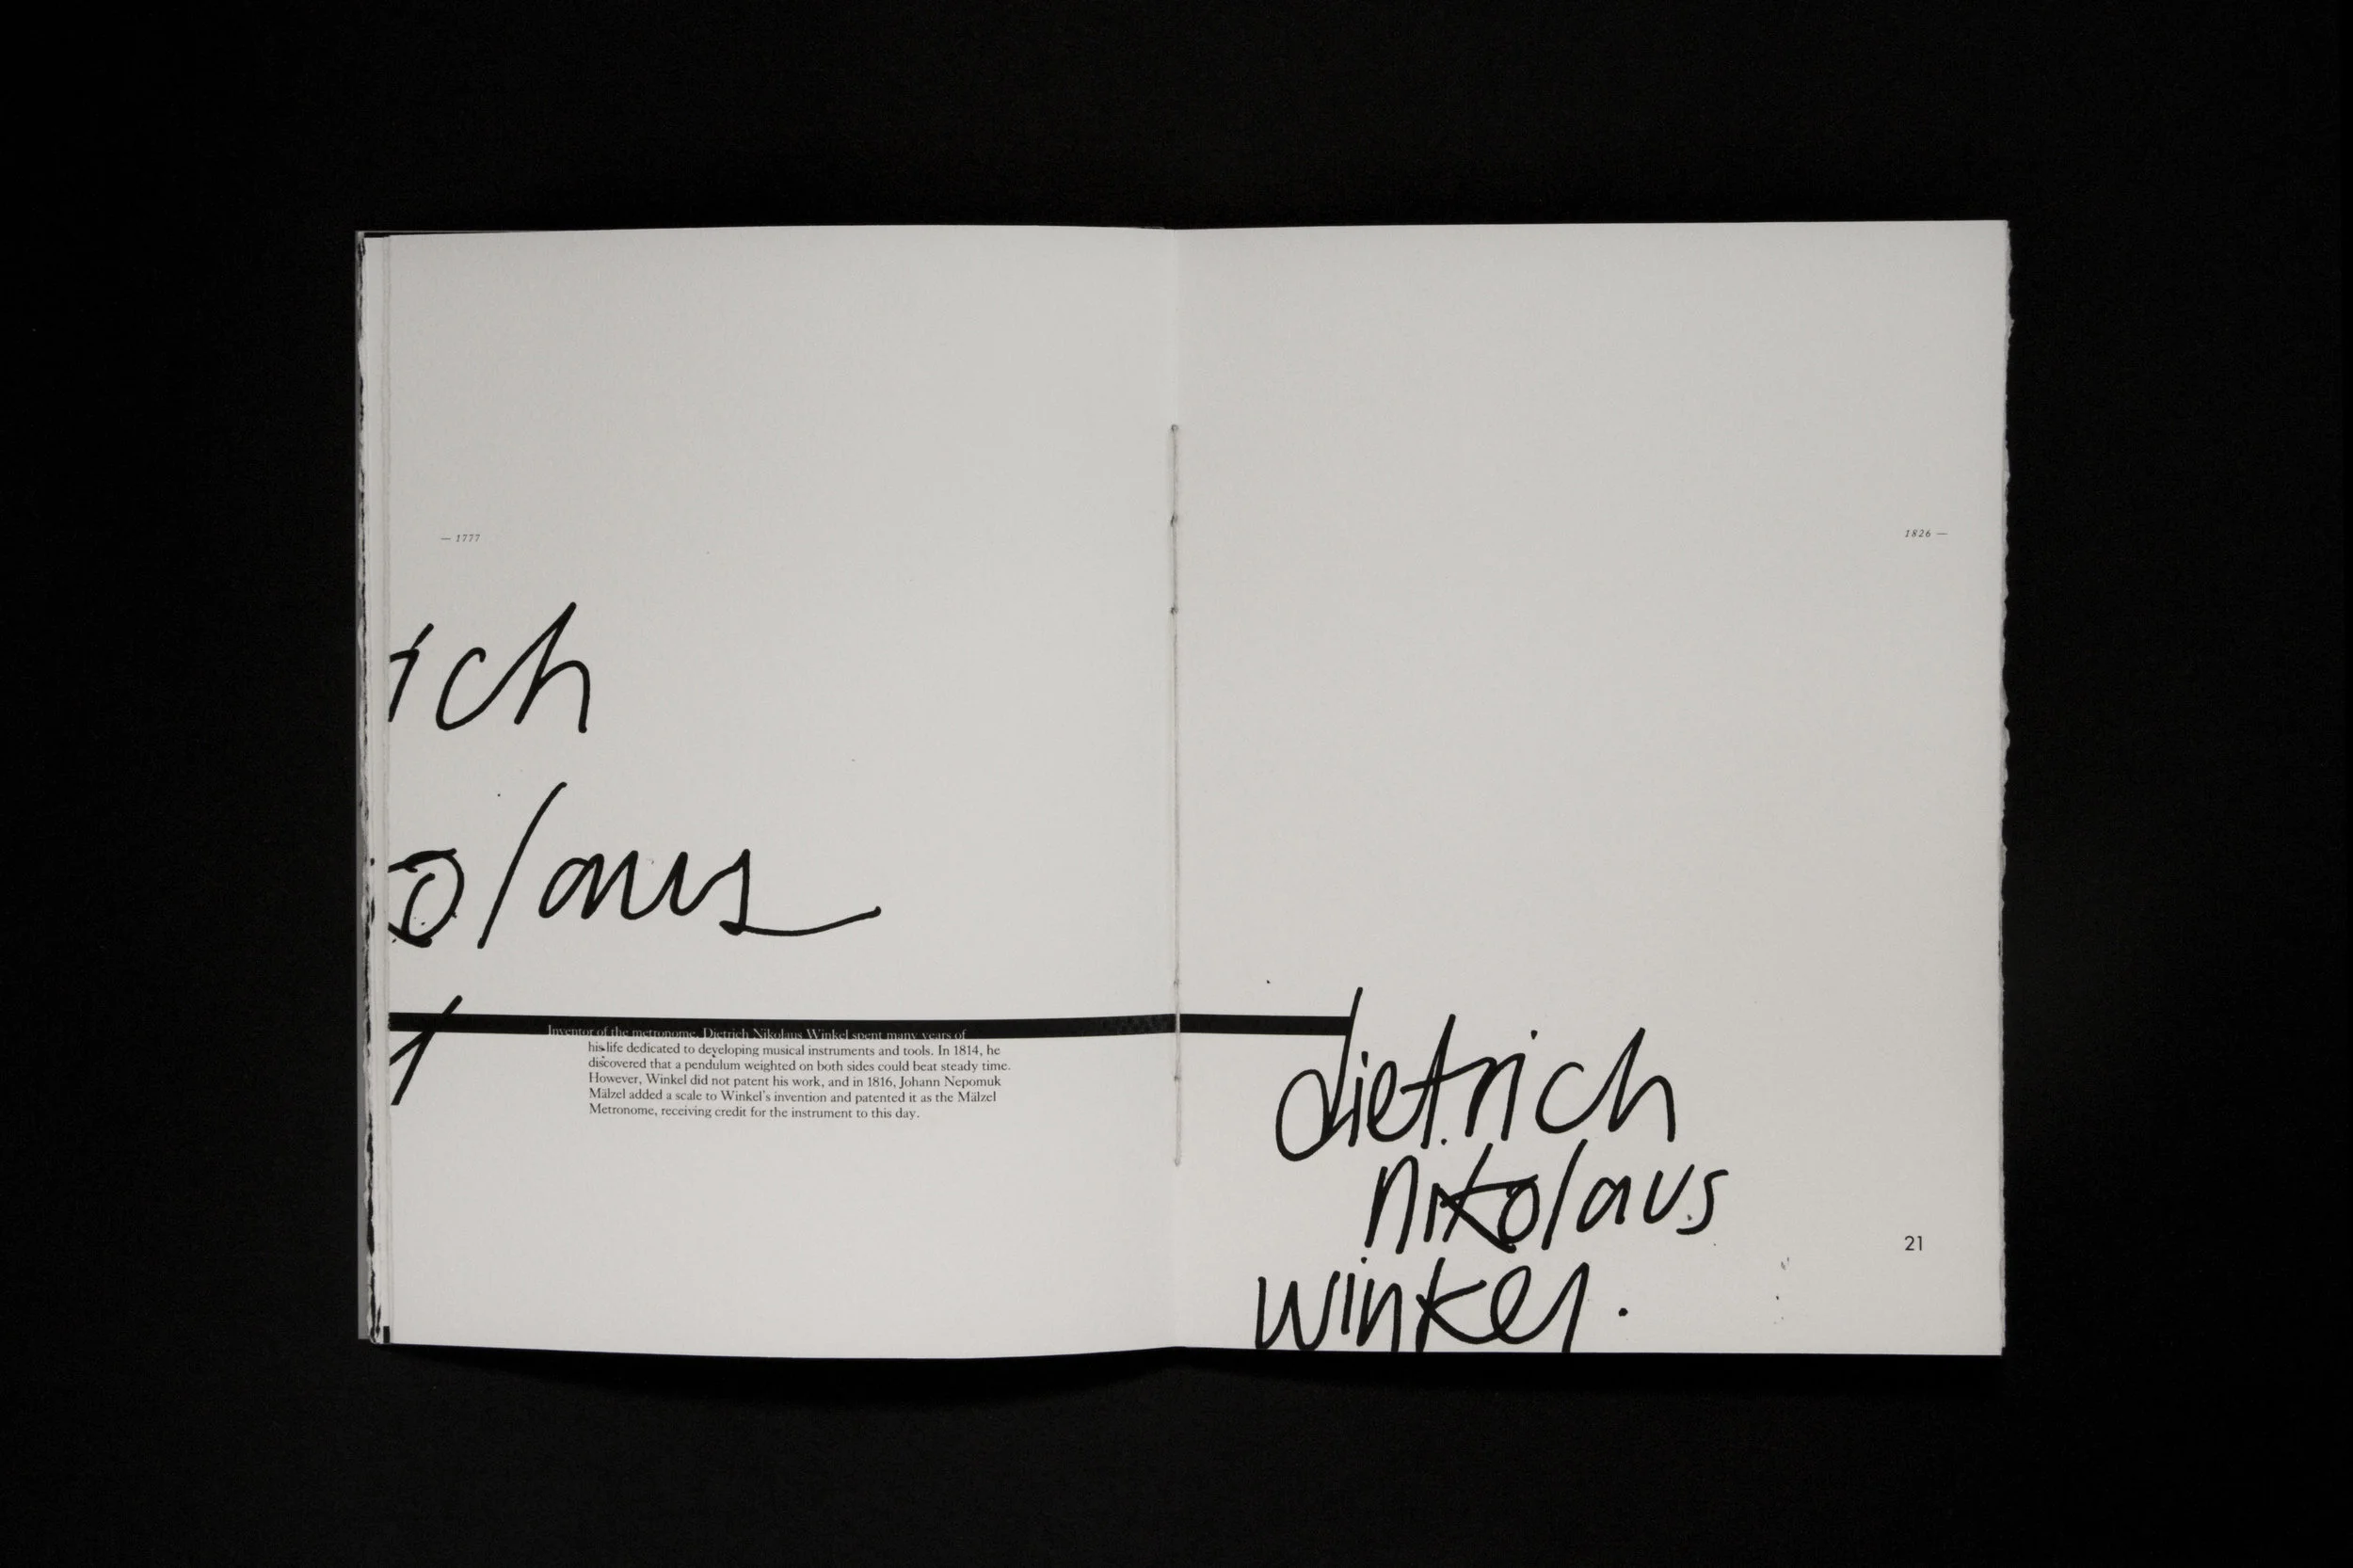 — 1777
ich
olaus
l
Inventor of the metronome, Dietrich Nikolaus Winkel spent many years of
his life dedicated to developing musical instruments and tools. In 1814, he
discovered that a pendulum weighted on both sides could beat steady time.
However, Winkel did not patent his work, and in 1816, Johann Nepomuk
Mälzel added a scale to Winkel's invention and patented it as the Mälzel
Metronome, receiving credit for the instrument to this day.
1826 —
dietrich
nikolaus
winkel.
21